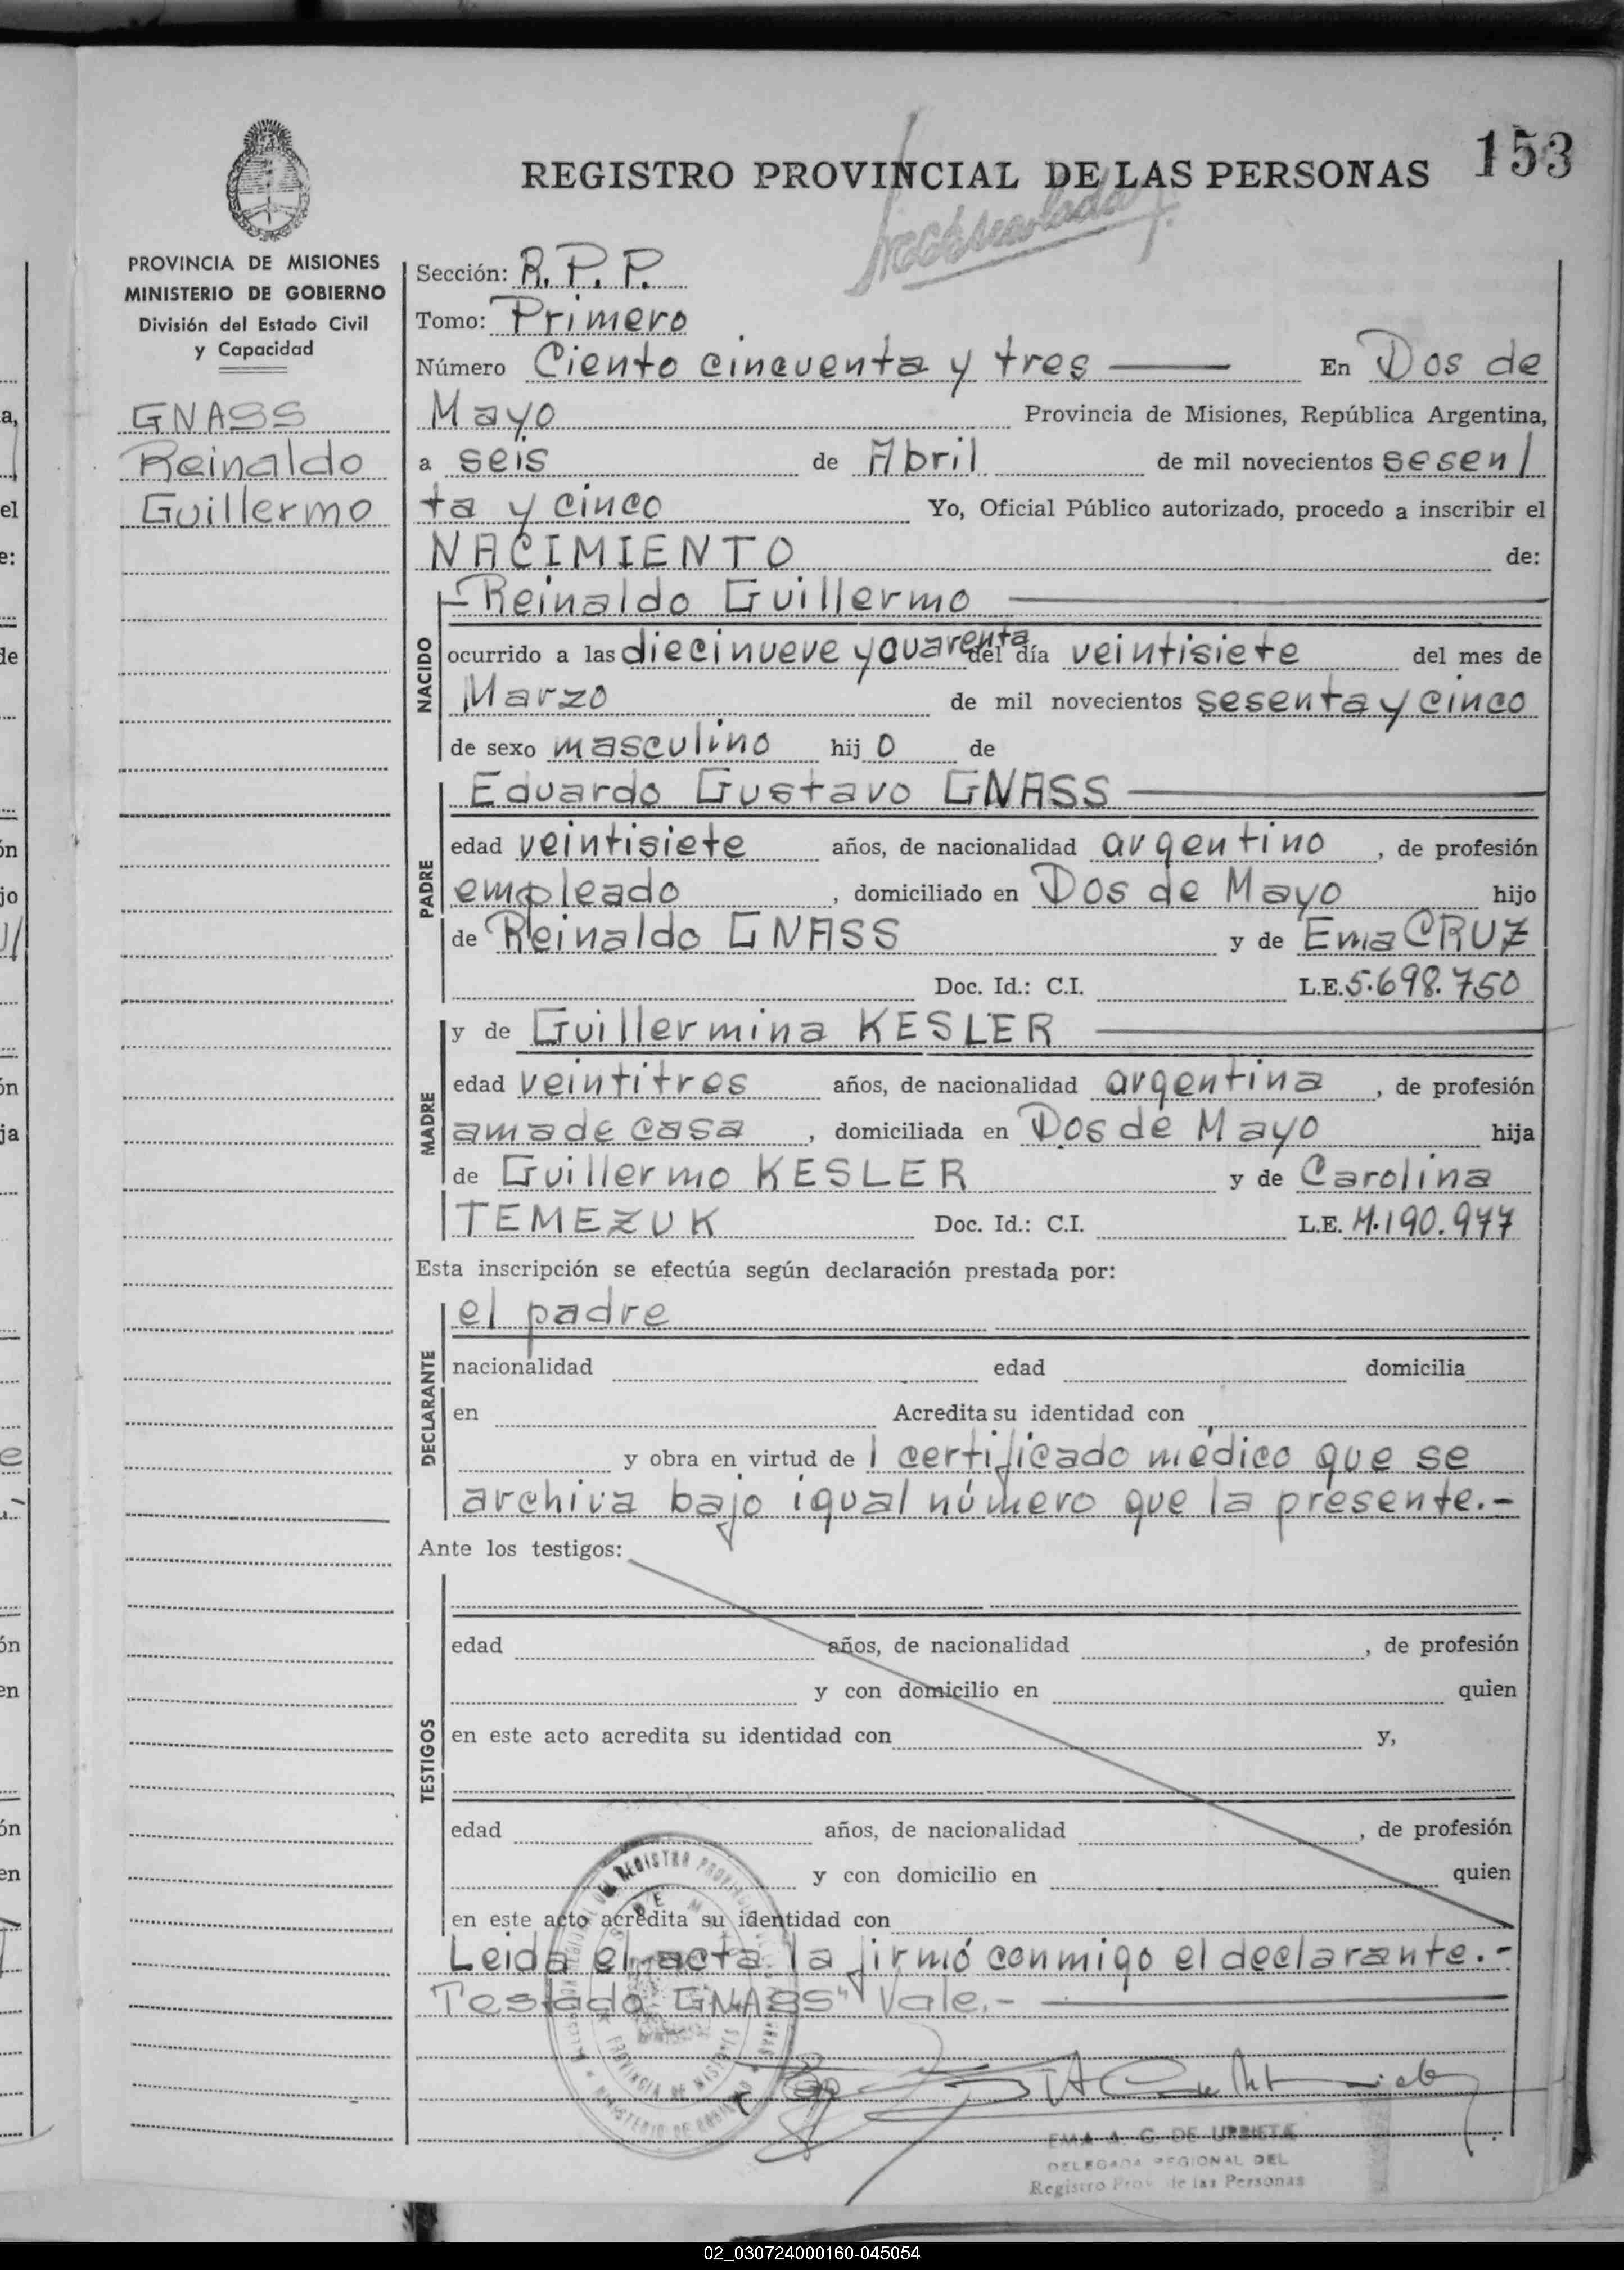 153
REGISTRO PROVINCIAL DE LAS PERSONAS
PROVINCIA DE MISIONES
MINISTERIO DE GOBIERNO
División del Estado Civil
y Capacidad
GNASS
Reinaldo
Guillermo
Sección: R.P.P.
Tomo: Primero
Número Ciento cincuenta y tres En Dos de
Mayo Provincia de Misiones, República Argentina,
a seis de Abril de mil novecientos sesen/
ta y cinco Yo, Oficial Público autorizado, procedo a inscribir el
NACIMIENTO de:
NACIDO
Reinaldo Guillermo
ocurrido a las diecinueve y cuarenta del día veintisiete del mes de
Marzo de mil novecientos sesenta y cinco
de sexo masculino hijo de
PADRE
Eduardo Gustavo GNASS
edad veintisiete años, de nacionalidad argentino, de profesión
empleado, domiciliado en Dos de Mayo hijo
de Reinaldo GNASS y de Ema CRUZ
Doc. Id.: C.I. L.E. 5.698.750
MADRE
y de Guillermina KESLER
edad veintitres años, de nacionalidad argentina, de profesión
ama de casa, domiciliada en Dos de Mayo hija
de Guillermo KESLER y de Carolina
TEMEZUK Doc. Id.: C.I. L.E. 4.190.977
Esta inscripción se efectúa según declaración prestada por:
DECLARANTE
el padre
nacionalidad edad domicilia
en Acredita su identidad con
y obra en virtud de 1 certificado médico que se
archiva bajo igual número que la presente.-
Ante los testigos:
TESTIGOS
edad años, de nacionalidad , de profesión
y con domicilio en quien
en este acto acredita su identidad con y,
edad años, de nacionalidad , de profesión
y con domicilio en quien
en este acto acredita su identidad con
Leida el acta la firmó conmigo el declarante.-
Testado GNASS" Vale.-
PROVINCIA DE MISIONES
EMA A. G. DE URBIETA
DELEGADA REGIONAL DEL
Registro Prov. de las Personas
02_030724000160-045054